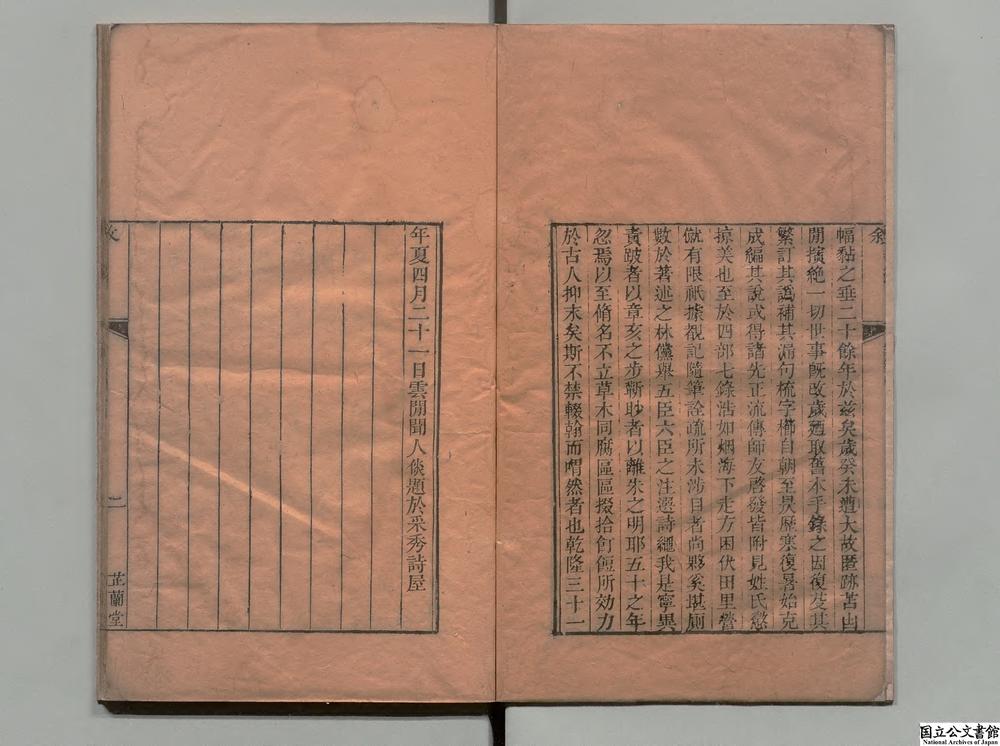 幅黏之垂二十餘年於茲矣歲癸未遭大故匿跡苫凷
閒摈絶一切世事旣改歲廼取舊本手錄之因復芟其
繁訂其譌補其漏句梳字櫛自朝至昃歷寒復暑始克
成編其說或得諸先正流傳師友啓發皆附見姓氏懲
掠美也至於四部七錄浩如烟海下走方困伏田里營
僦有限祇據覩記隨筆詮疏所未涉目者尚夥奚堪廁
數於著述之林儻舉五臣六臣之注選詩繩我是寧異
責跛者以章亥之步蘄眇者以離朱之明耶五十之年
忽焉以至脩名不立草木同腐區區掇拾飣餖所効力
於古人抑末矣斯不禁輟翰而喟然者也乾隆三十一
年夏四月二十一日雲閒聞人倓題於采秀詩屋
二
芷蘭堂
国立公文書館
National Archives of Japan